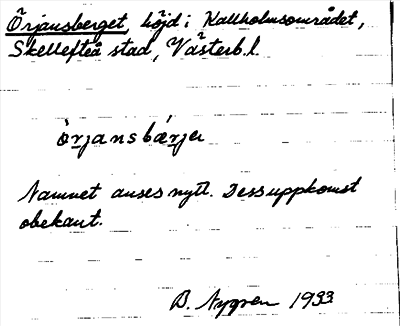 Örjansberget, höjd i Kallholmsområdet,
Skellefteå stad, Västerb.l.
örjansbærjer
Namnet anses nytt. Dess uppkomst
obekant.
B. Nygren 1933